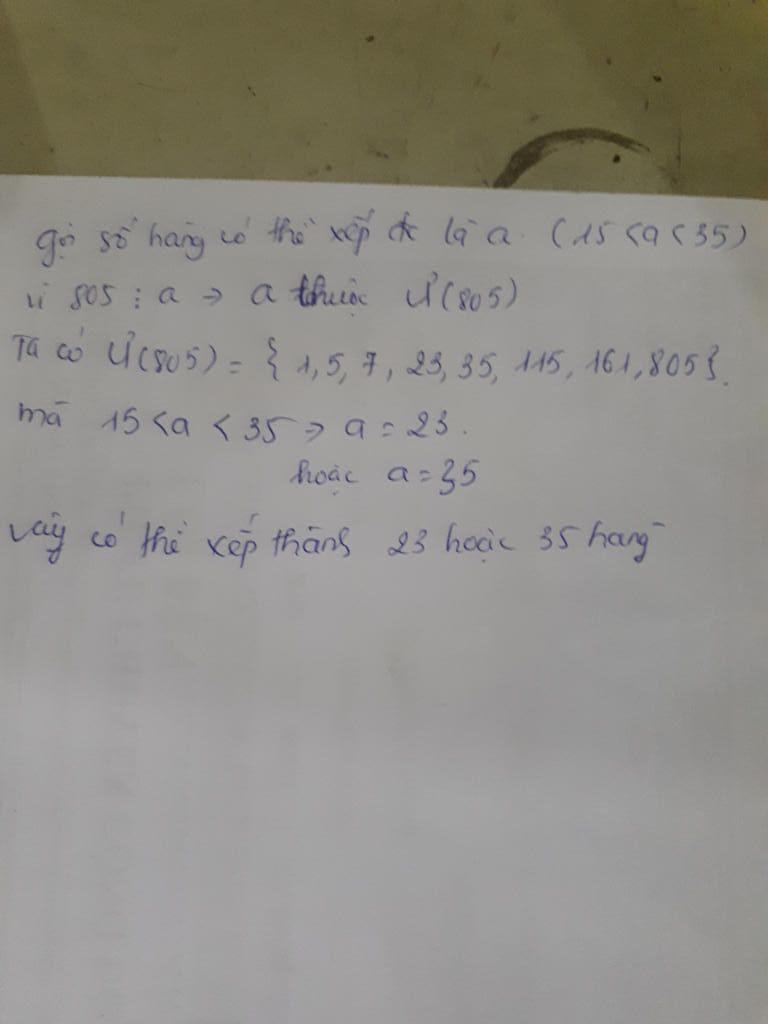 gọi số hàng có thể xếp đc là a. (15 < a < 35)
vì 805 ⋮ a → a thuộc Ư(805)
Ta có Ư(805) = { 1, 5, 7, 23, 35, 115, 161, 805 }.
mà 15 < a < 35 → a = 23.
hoặc a = 35
vậy có thể xếp thành 23 hoặc 35 hàng